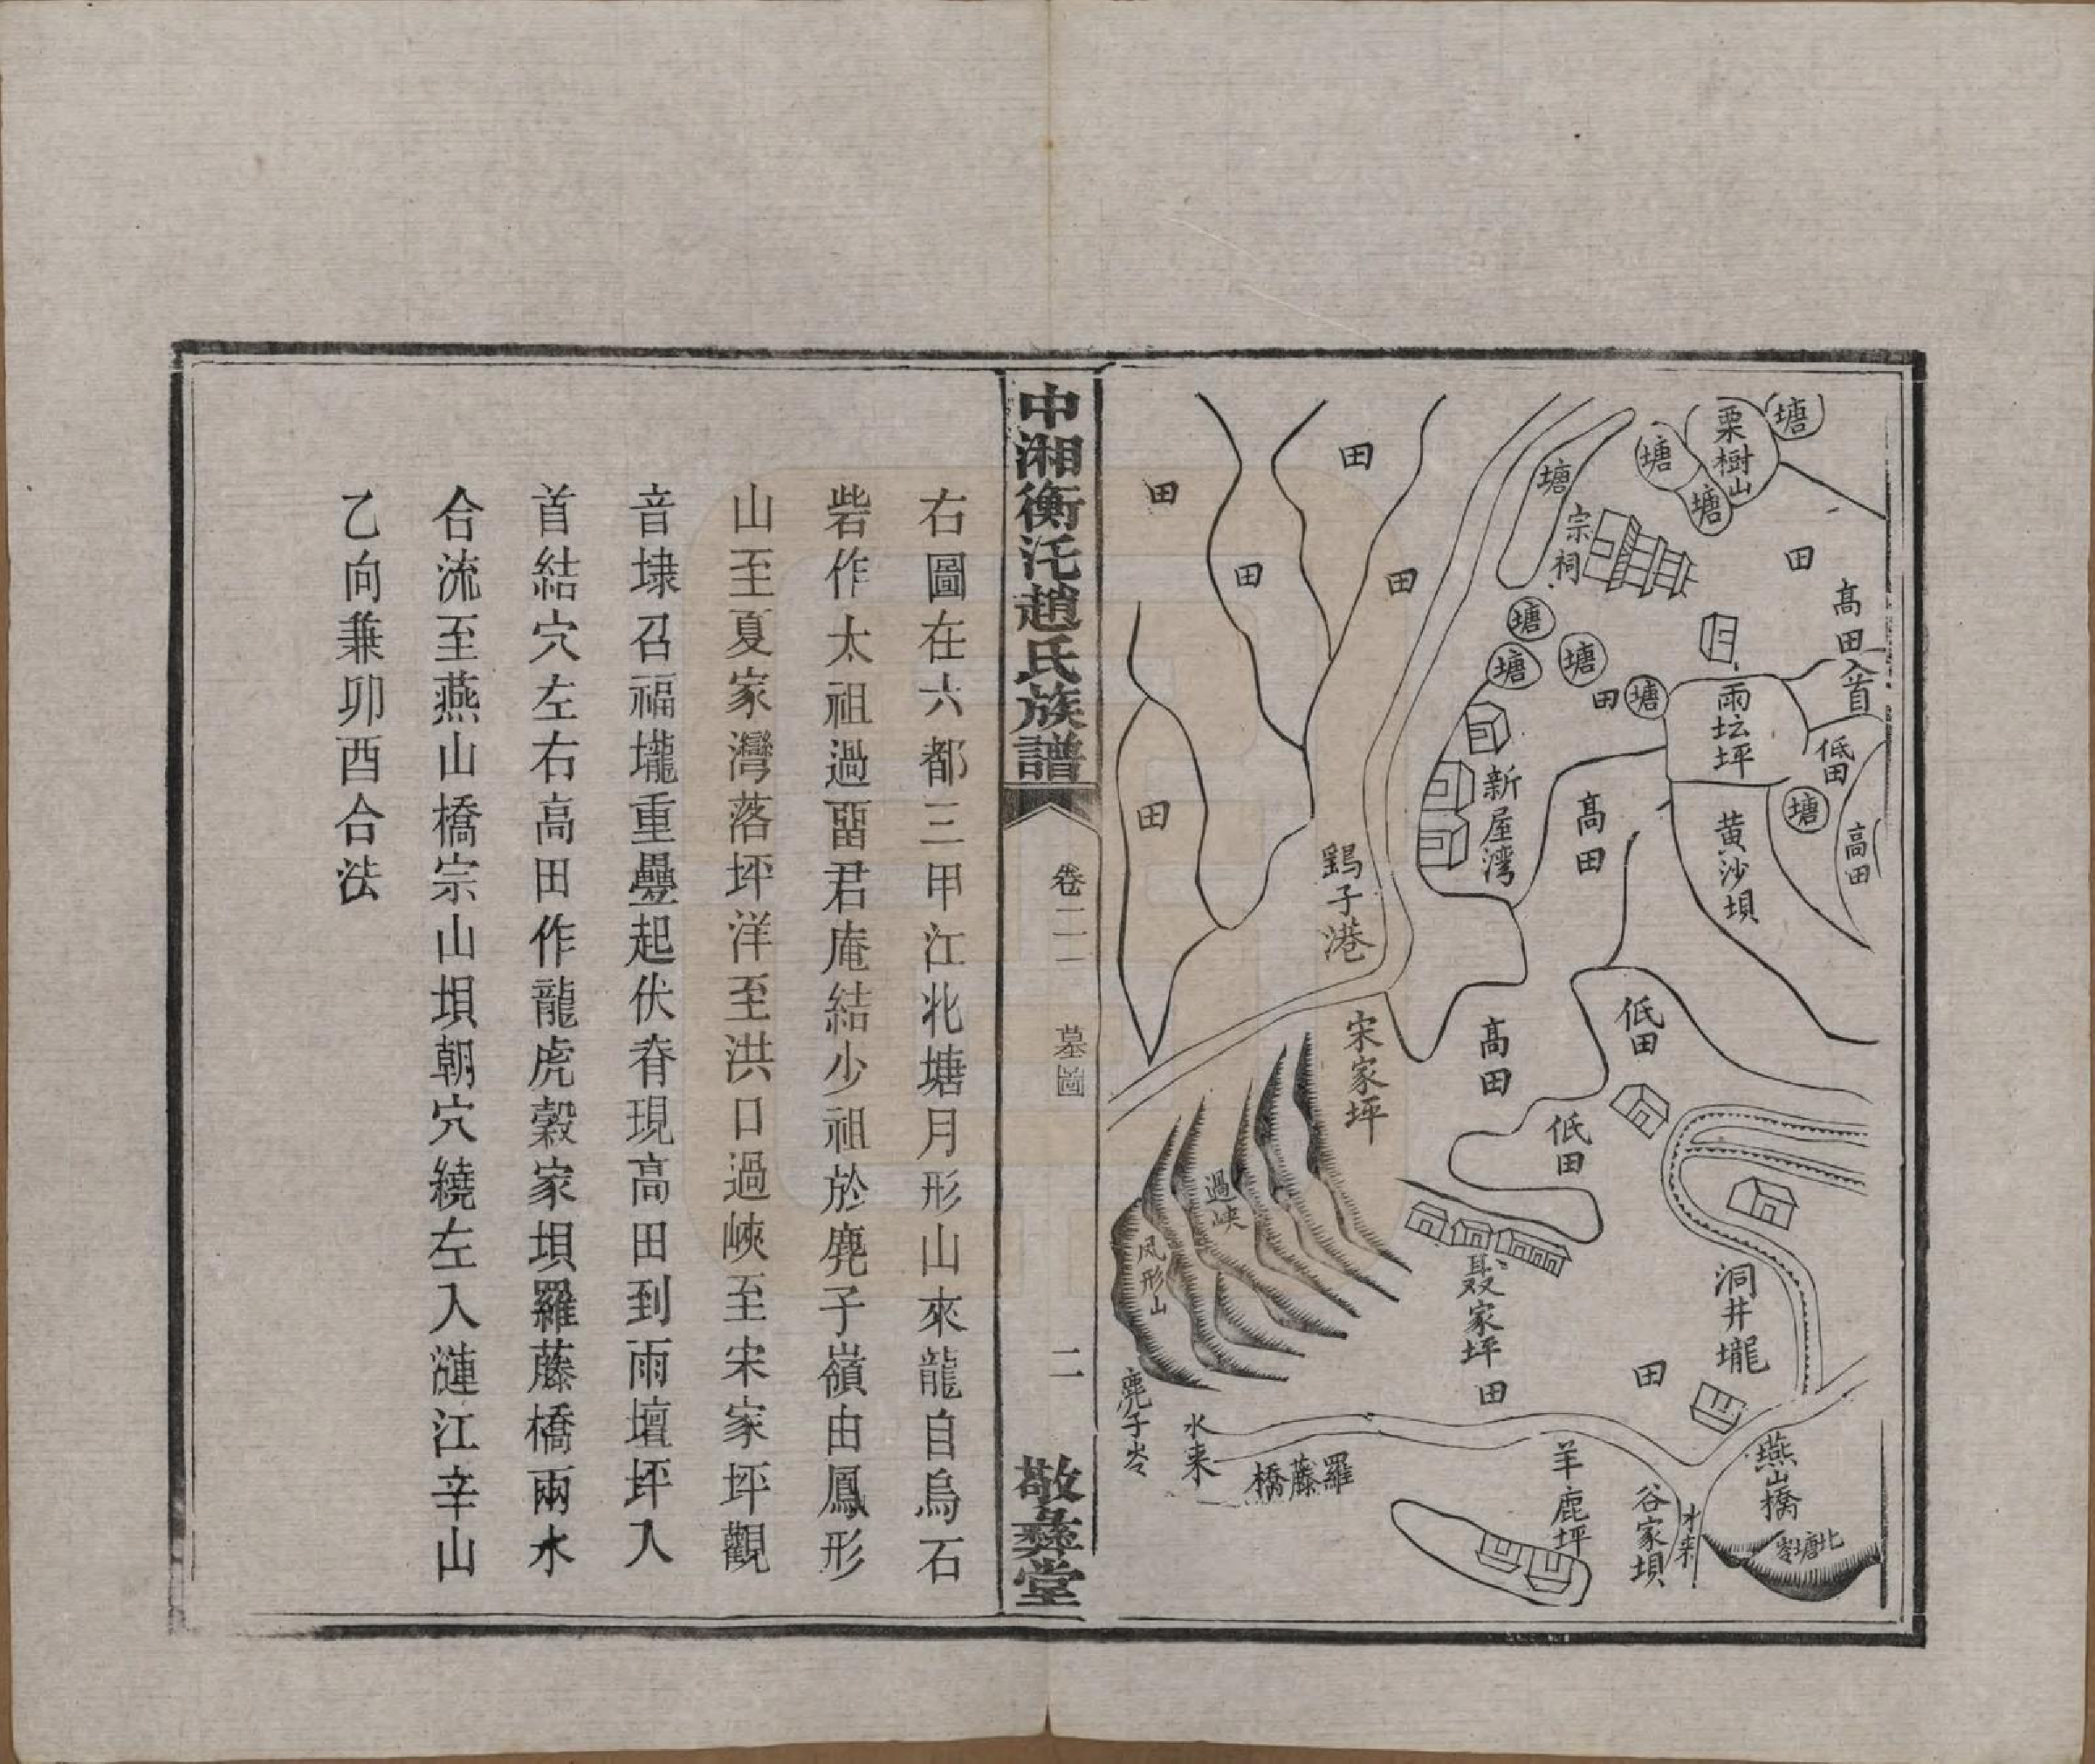 塘
栗樹山
塘
塘
田
高田
入首
塘
宗祠
塘
塘
塘
田
塘
雨坛坪
低田
塘
高田
黄沙壩
新屋湾
高田
田
田
田
田
田
鷄子港
宋家坪
高田
低田
低田
過峡
凤形山
聂家坪
田
洞井壠
田
麂子岺
水来
羅藤橋
羊鹿坪
谷家坝
水来
燕山橋
北塘岺
中湘衡汑趙氏族譜
卷二
墓圖
二
敬彝堂
右圖在六都三甲江北塘月形山來龍自烏石
砦作太祖過畱君庵結少祖於麂子嶺由鳳形
山至夏家灣落坪洋至洪口過峽至宋家坪觀
音埭召福壠重疊起伏脊現高田到雨壇坪入
首結穴左右高田作龍虎穀家垻羅藤橋兩水
合流至燕山橋宗山垻朝穴繞左入漣江辛山
乙向兼卯酉合法